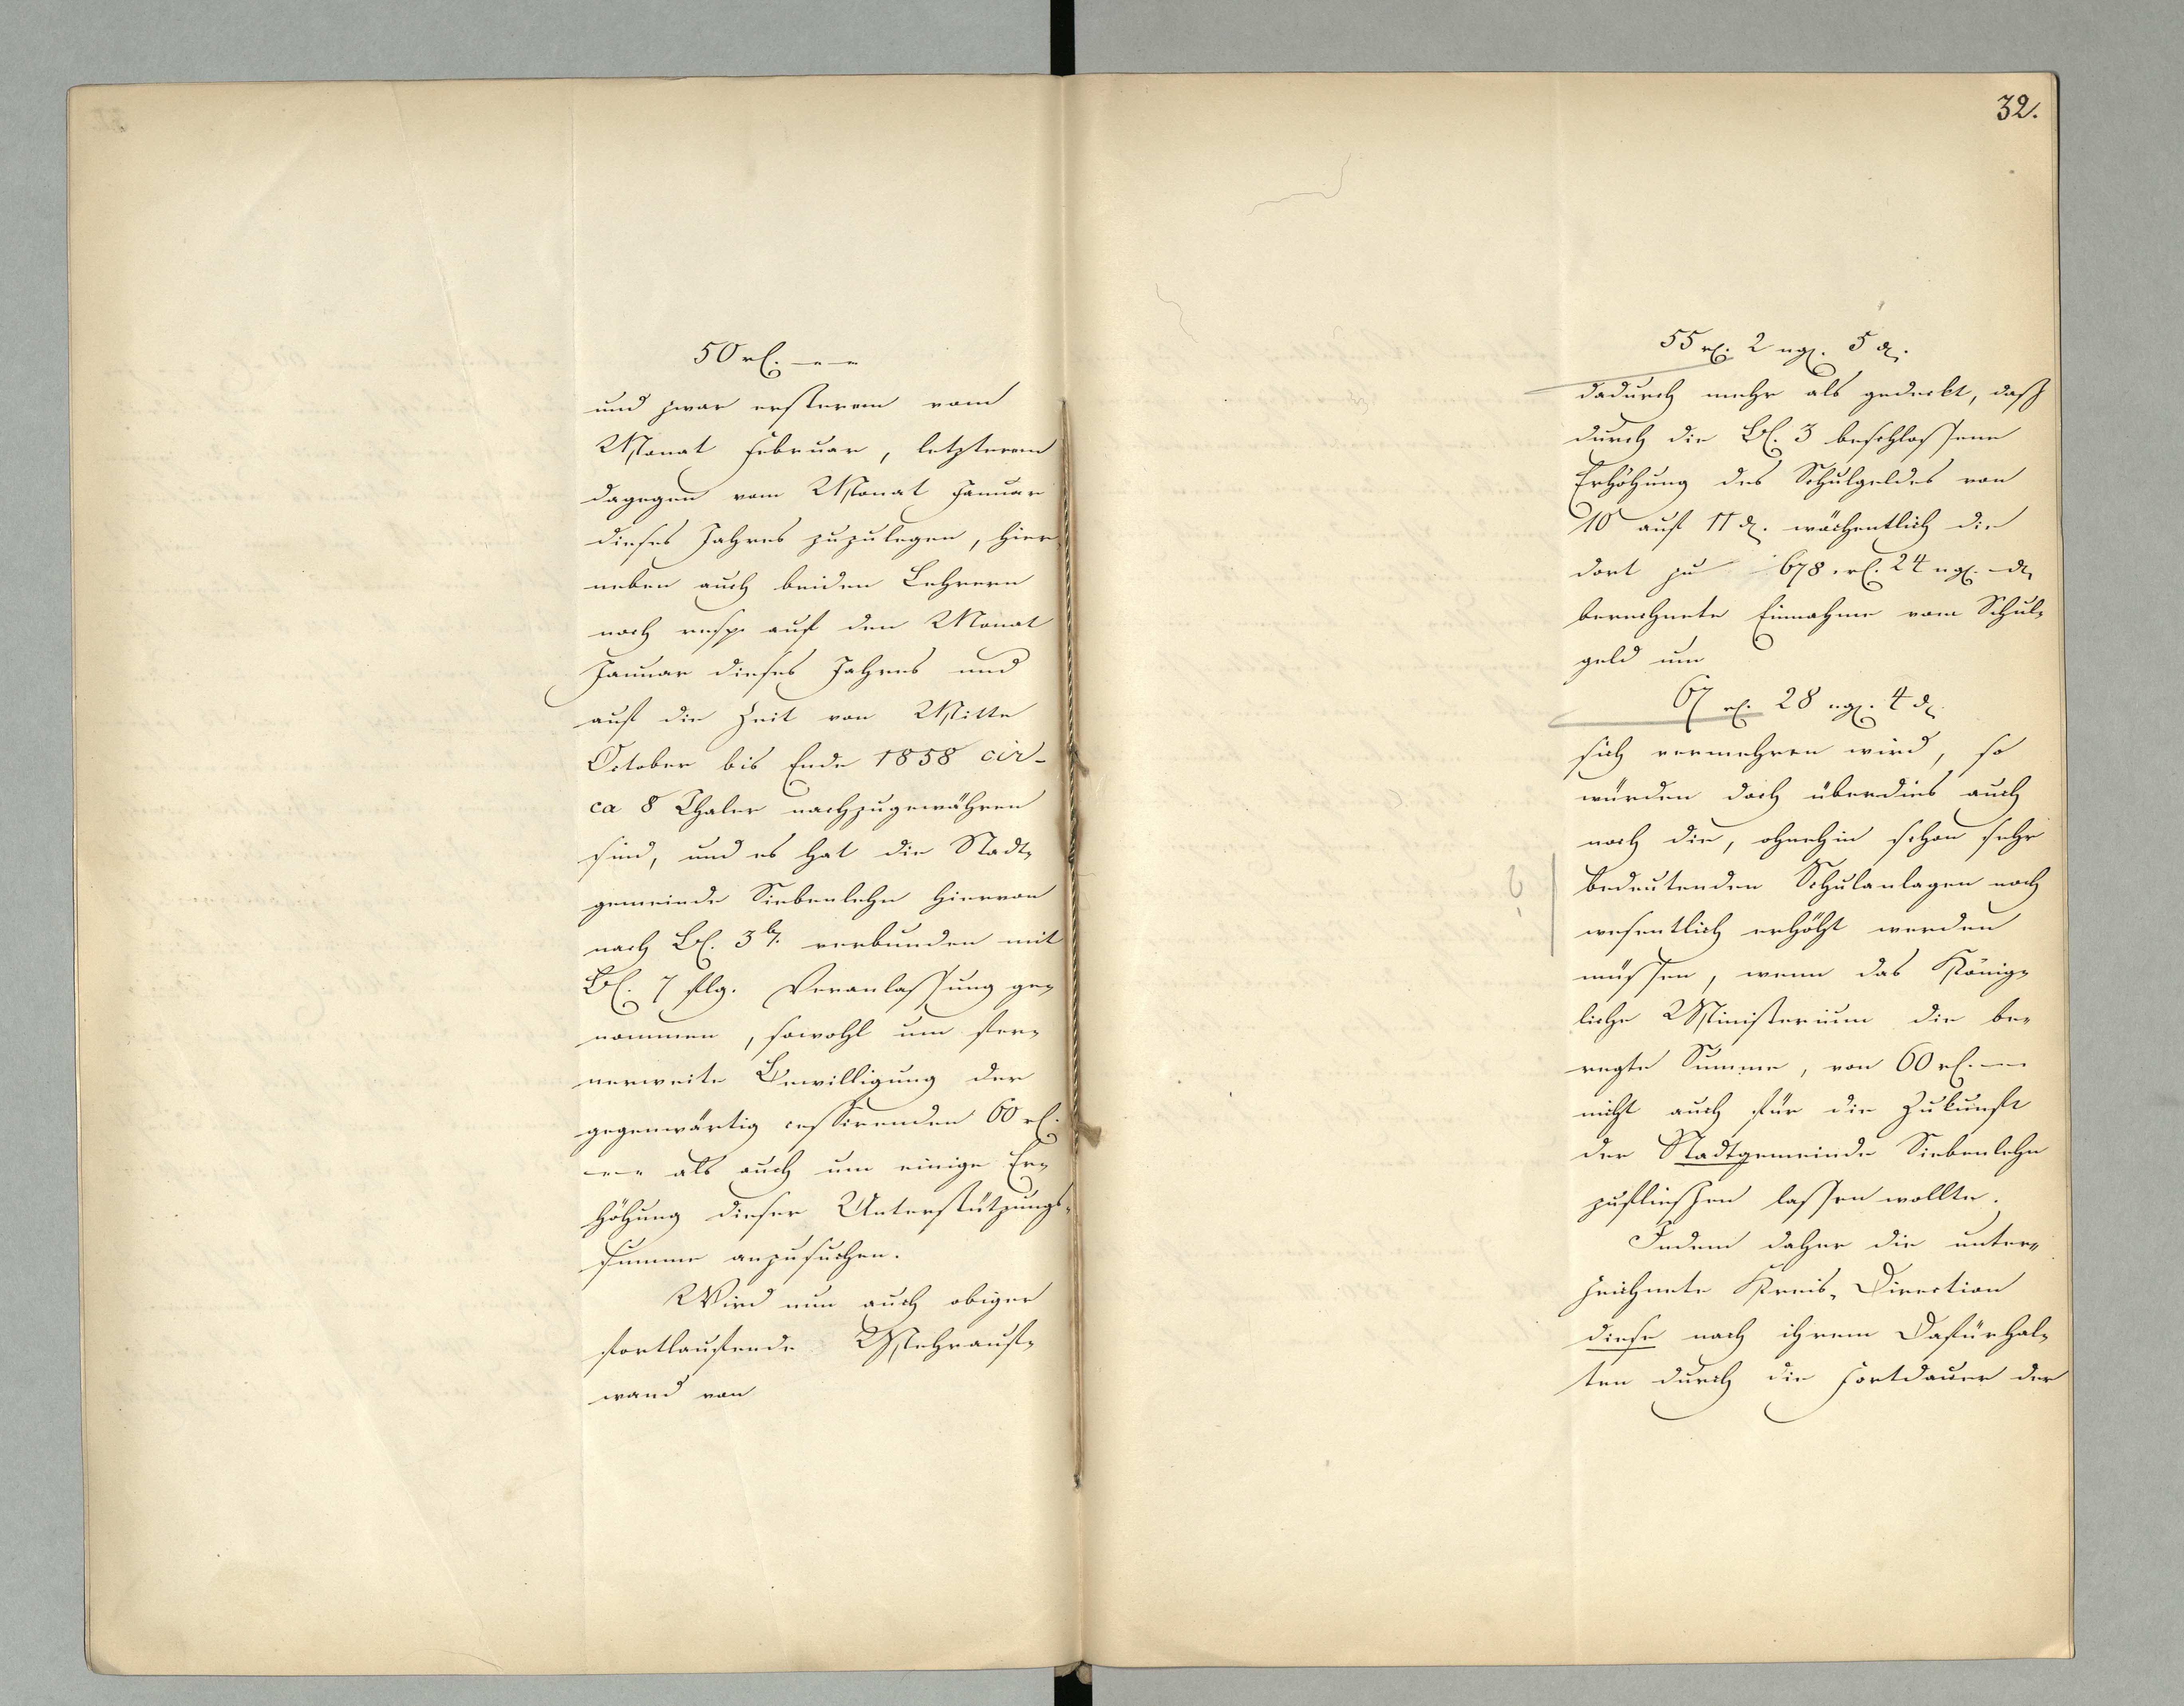 50 rℓ. – – –
und zwar ersterem vom
Monat Februar, letzterem
dagegen vom Monat Januar
dieses Jahres zuzulegen, hier
neben auch beiden Lehrern
noch resp. auf den Monat
Januar dieses Jahres und
auf die Zeit von Mitte
October bis Ende 1858 cir-
ca 8 Thaler nachzugewähren
sind, und es hat die Stadt-
gemeinde Siebenlehn hiervon
nach Bl. 3b. verbunden mit
Bl. 7 flg. Veranlassung ge-
nommen, sowohl um fer-
nerweite Bewilligung der
gegenwärtig cessirenden 60 rℓ.
– – – als auch um einige Er-
höhung dieser Unterstützungs-
summe anzusuchen.
Wird nun auch obiger
fortlaufende Mehrauf-
wand von
32.
55 rℓ. 2 ngl. 5 d.
dadurch mehr als gedeckt, daß
durch die Bl. 3 beschlossene
Erhöhung des Schulgeldes von
10 auf 11 d. wöchentlich die
dort zu 678 rℓ. 24 ngl. – d.
berechnete Einnahme vom Schul-
geld um
67 rℓ. 28 ngl. 4 d.
sich vermehren wird, so
würden doch überdies auch
noch die, ohnehin schon sehr
bedeutenden Schulanlagen noch
wesentlich erhöht werden
müssen, wenn das König-
liche Ministerium die be-
regte Summe, von 60 rℓ. – –
nicht auch für die Zukunft
der Stadtgemeinde Siebenlehn
zufließen lassen wollte.
Indem daher die unter-
zeichnete Kreis-Direction
diese nach ihrem Dafürhal-
ten durch die Fortdauer der